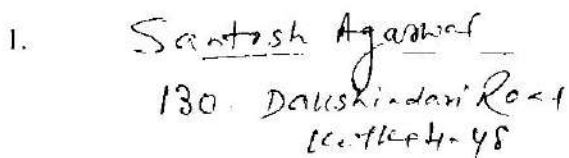 1. Santosh Agarwal
130. Dakshindari Road
Kolkata-48